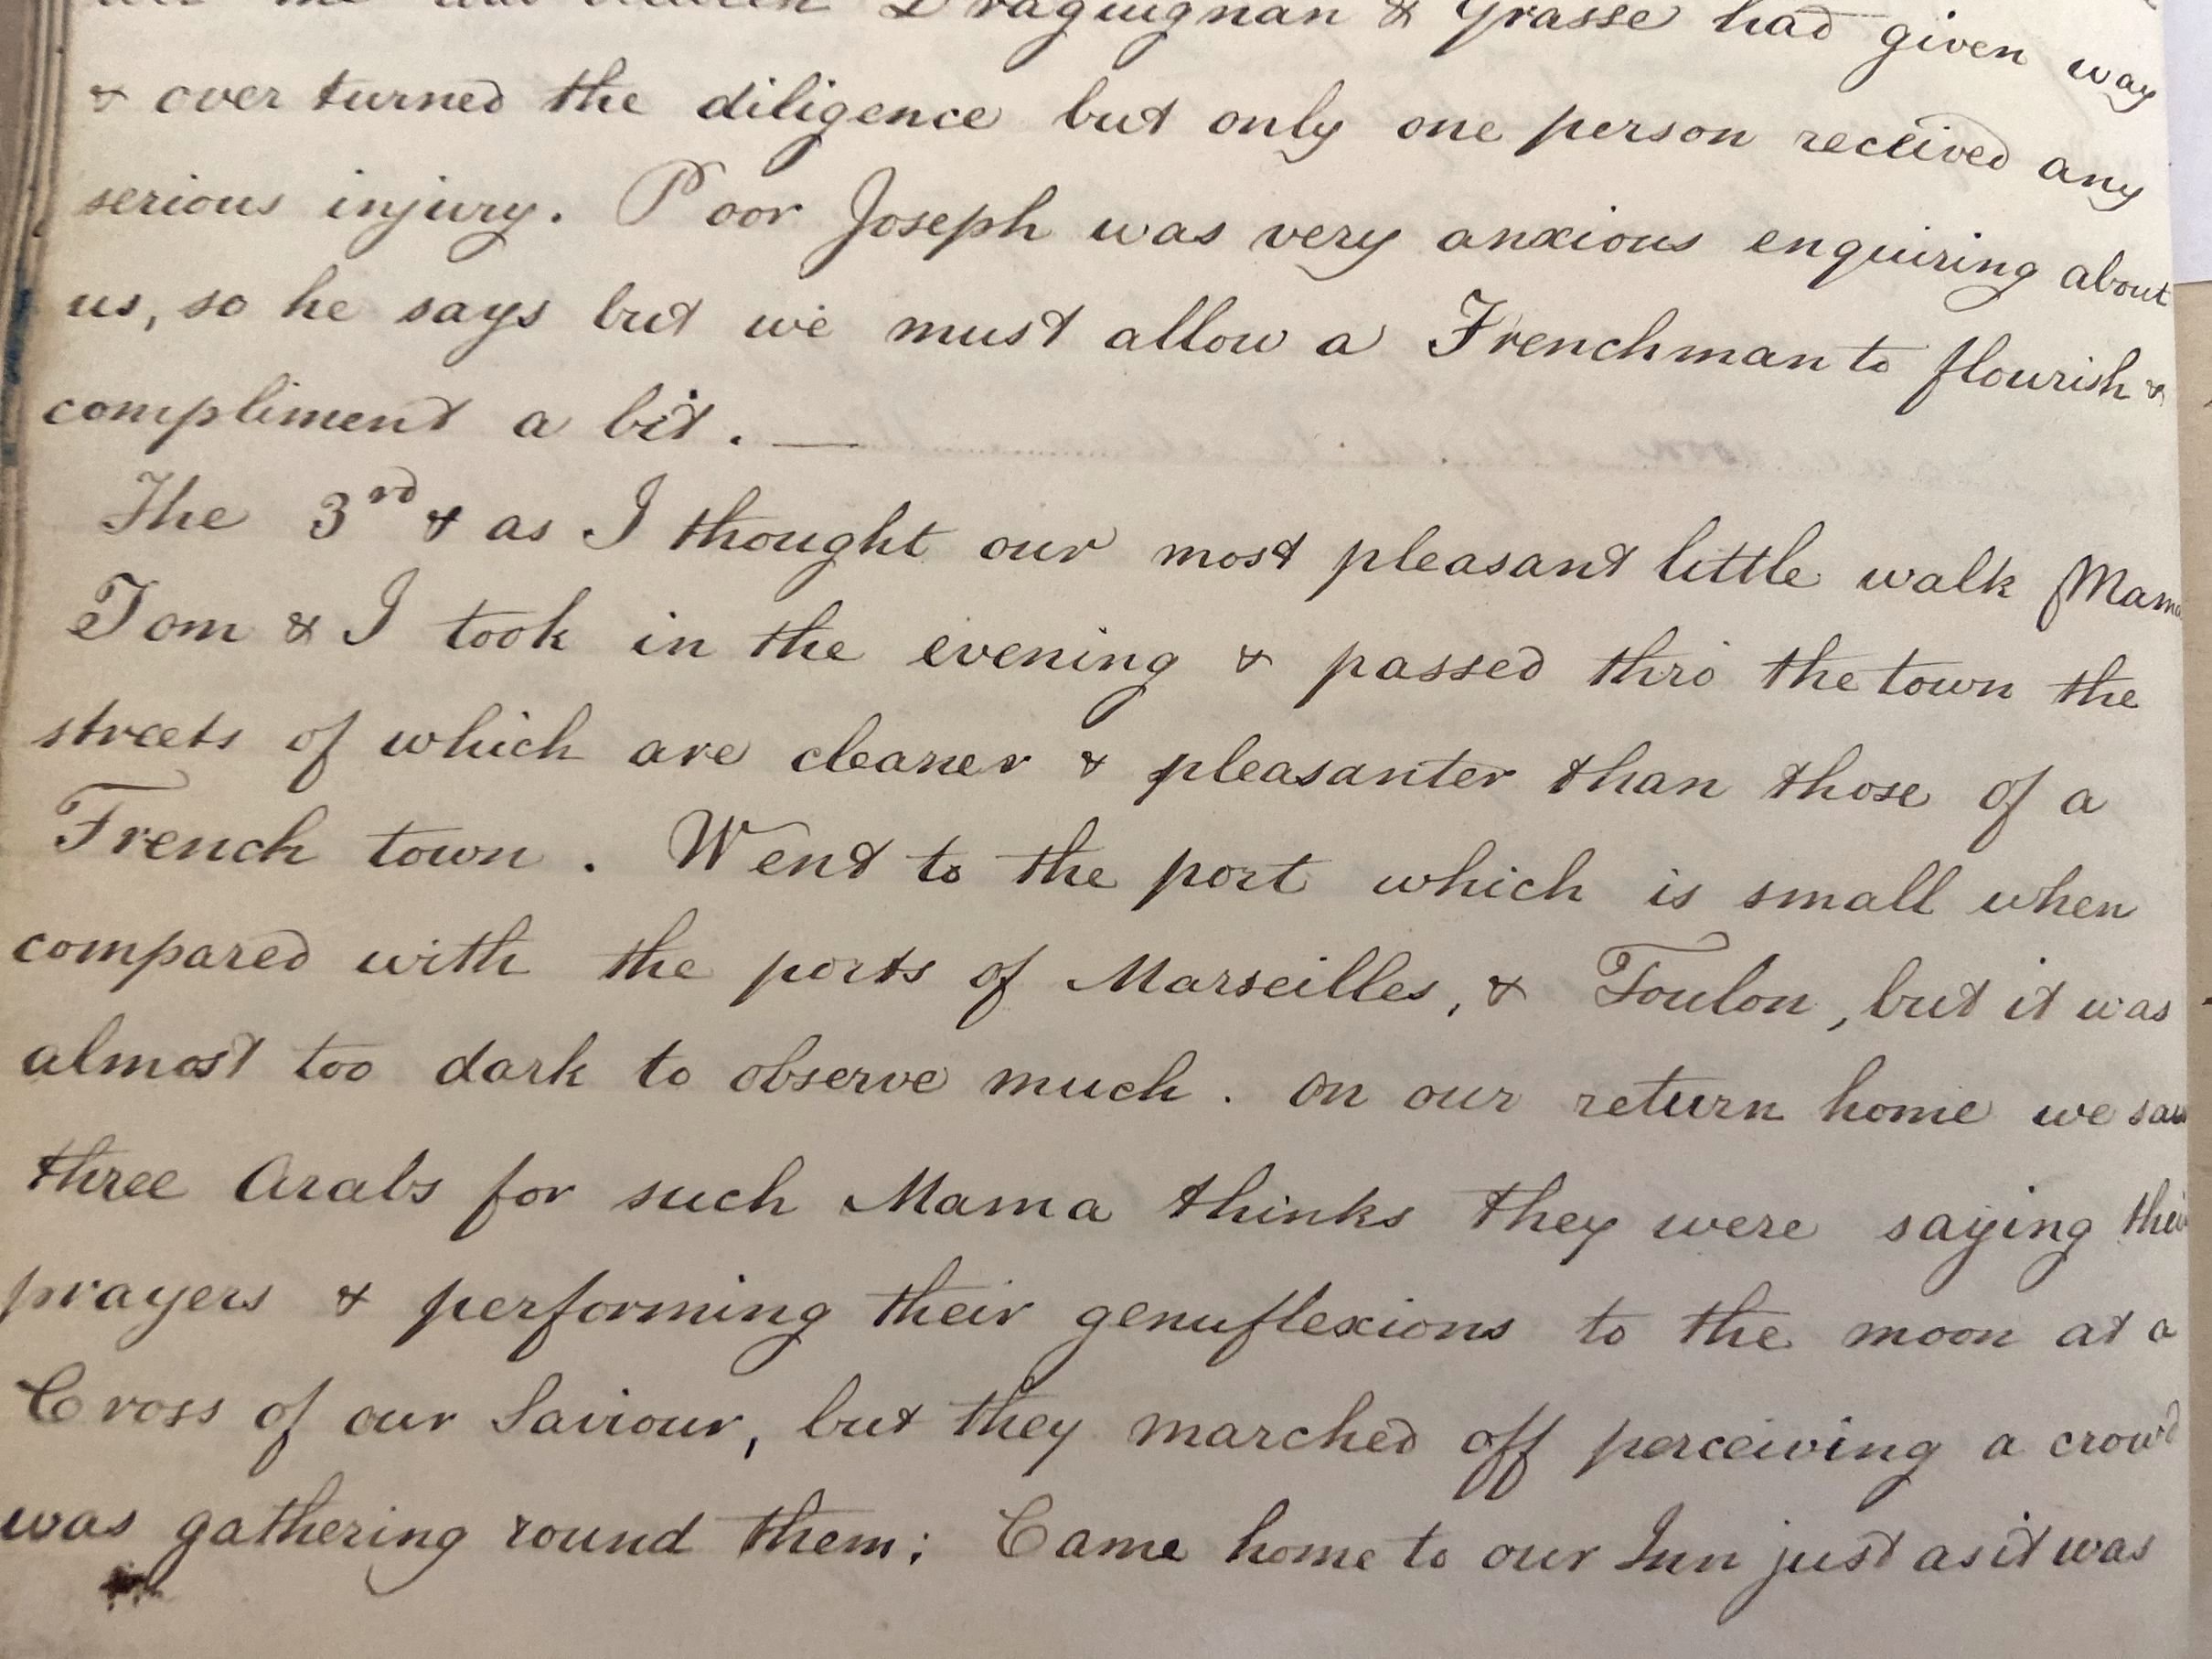 Draguignan & Grasse had given way
& over turned the diligence but only one person received any
serious injury. Poor Joseph was very anxious enquiring about
us, so he says but we must allow a Frenchman to flourish &
compliment a bit. —
The 3rd & as I thought our most pleasant little walk Mama
Tom & I took in the evening & passed thro the town the
streets of which are cleaner & pleasanter than those of a
French town. Went to the port which is small when
compared with the ports of Marseilles, & Toulon, but it was
almost too dark to observe much. on our return home we saw
three Arabs for such Mama thinks they were saying their
prayers & performing their genuflexions to the moon at a
Cross of our Saviour, but they marched off perceiving a crowd
was gathering round them; Came home to our Inn just as it was